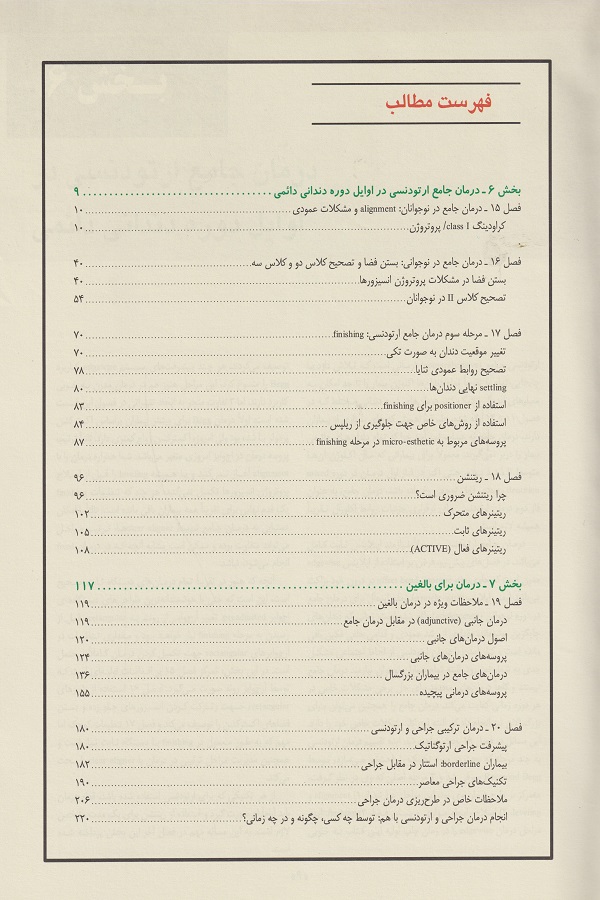 فهرست مطالب
بخش ۶ ـ درمان جامع ارتودنسی در اوایل دوره دندانی دائمی ۹
فصل ۱۵ ـ درمان جامع در نوجوانان: alignment و مشکلات عمودی ۱۰
کراودینگ class I/ پروتروژن ۱۰
فصل ۱۶ ـ درمان جامع در نوجوانی: بستن فضا و تصحیح کلاس دو و کلاس سه ۴۰
بستن فضا در مشکلات پروتروژن انسیزورها ۴۰
تصحیح کلاس II در نوجوانان ۵۴
فصل ۱۷ ـ مرحله سوم درمان جامع ارتودنسی: finishing ۷۰
تغییر موقعیت دندان به صورت تکی ۷۰
تصحیح روابط عمودی ثنایا ۷۸
settling نهایی دندان‌ها ۸۰
استفاده از positioner برای finishing ۸۳
استفاده از روش‌های خاص جهت جلوگیری از ریلپس ۸۴
پروسه‌های مربوط به micro-esthetic در مرحله finishing ۸۷
فصل ۱۸ ـ ریتنشن ۹۶
چرا ریتنشن ضروری است؟ ۹۶
ریتینرهای متحرک ۱۰۲
ریتینرهای ثابت ۱۰۵
ریتینرهای فعال (ACTIVE) ۱۰۸
بخش ۷ ـ درمان برای بالغین ۱۱۷
فصل ۱۹ ـ ملاحظات ویژه در درمان بالغین ۱۱۹
درمان جانبی (adjunctive) در مقابل درمان جامع ۱۱۹
اصول درمان‌های جانبی ۱۲۰
پروسه‌های درمان‌های جانبی ۱۲۴
درمان‌های جامع در بیماران بزرگسال ۱۳۶
پروسه‌های درمانی پیچیده ۱۵۵
فصل ۲۰ ـ درمان ترکیبی جراحی و ارتودنسی ۱۸۰
پیشرفت جراحی ارتوگناتیک ۱۸۰
بیماران borderline: استتار در مقابل جراحی ۱۸۲
تکنیک‌های جراحی معاصر ۱۹۰
ملاحظات خاص در طرح‌ریزی درمان جراحی ۲۰۶
انجام درمان جراحی و ارتودنسی با هم: توسط چه کسی، چگونه و در چه زمانی؟ ۲۲۰